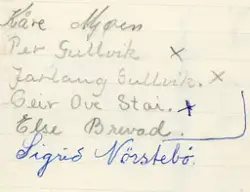 Kåre Mjøen
Per Gullvik x
Jarlaug Gullvik. x
Geir Ove Stai. x
Else Brevad.
Sigrid Nörstebö.